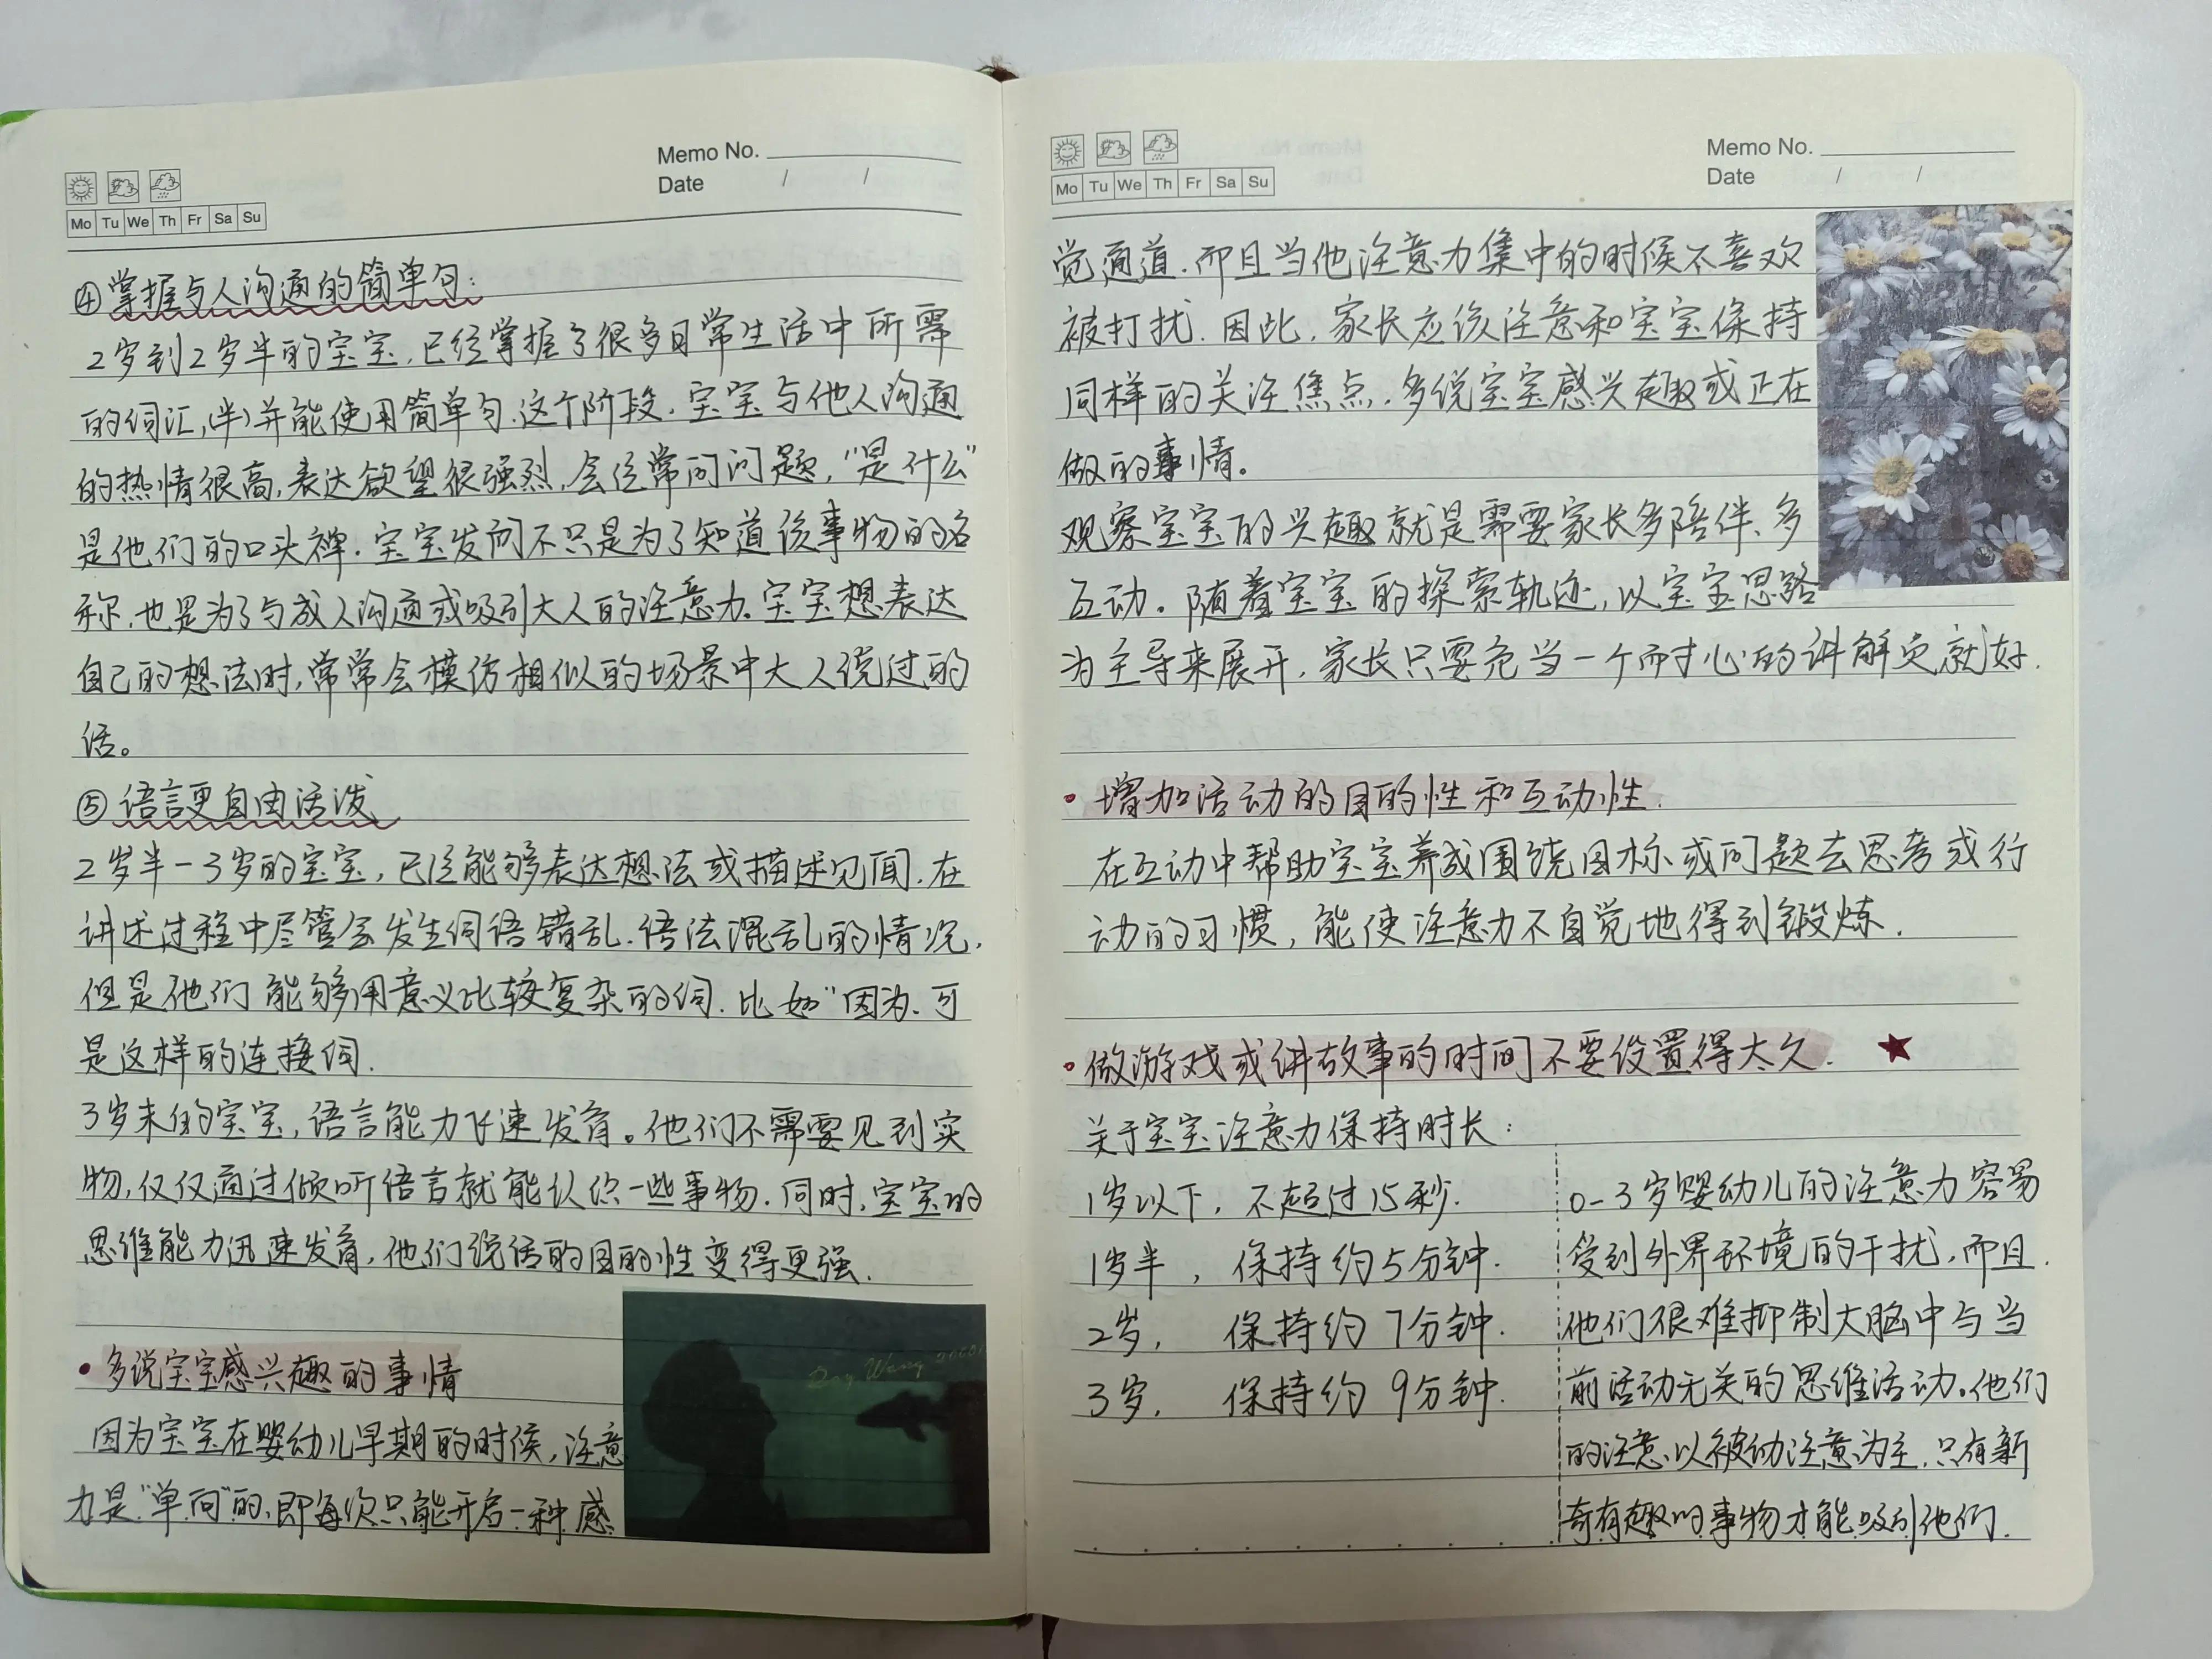 Memo No.
Date / /
Mo Tu We Th Fr Sa Su
④掌握与人沟通的简单句:
2岁到2岁半的宝宝,已经掌握了很多日常生活中所需
的词汇,(半)并能使用简单句.这个阶段.宝宝与他人沟通
的热情很高,表达欲望很强烈,会经常问问题,"是什么"
是他们的口头禅.宝宝发问不只是为了知道该事物的名
称,也是为了与成人沟通或吸引大人的注意力.宝宝想表达
自己的想法时,常常会模仿相似的场景中大人说过的
话。
⑤语言更自由活泼
2岁半-3岁的宝宝,已经能够表达想法或描述见闻.在
讲述过程中尽管会发生词语错乱.语法混乱的情况,
但是他们能够用意义比较复杂的词.比如"因为.可
是这样的连接词.
3岁末的宝宝,语言能力飞速发育。他们不需要见到实
物,仅仅通过倾听语言就能认识一些事物.同时,宝宝的
思维能力迅速发育,他们说话的目的性变得更强.
•多说宝宝感兴趣的事情
因为宝宝在婴幼儿早期的时候,注意
力是"单向"的,即每次只能开启一种感
Memo No.
Date / /
Mo Tu We Th Fr Sa Su
觉通道.而且当他注意力集中的时候不喜欢
被打扰.因此,家长应该注意和宝宝保持
同样的关注焦点,多说宝宝感兴趣或正在
做的事情。
观察宝宝的兴趣就是需要家长多陪伴、多
互动。随着宝宝的探索轨迹,以宝宝思路
为主导来展开,家长只要充当一个耐心的讲解员就好.
•增加活动的目的性和互动性.
在互动中帮助宝宝养成围绕目标或问题去思考或行
动的习惯,能使注意力不自觉地得到锻炼.
•做游戏或讲故事的时间不要设置得太久. ★
关于宝宝注意力保持时长:
1岁以下,不超过15秒.
1岁半,保持约5分钟.
2岁,保持约7分钟.
3岁,保持约9分钟.
0-3岁婴幼儿的注意力容易
受到外界环境的干扰,而且.
他们很难抑制大脑中与当
前活动无关的思维活动.他们
的注意以被动注意为主.只有新
奇有趣的事物才能吸引他们.